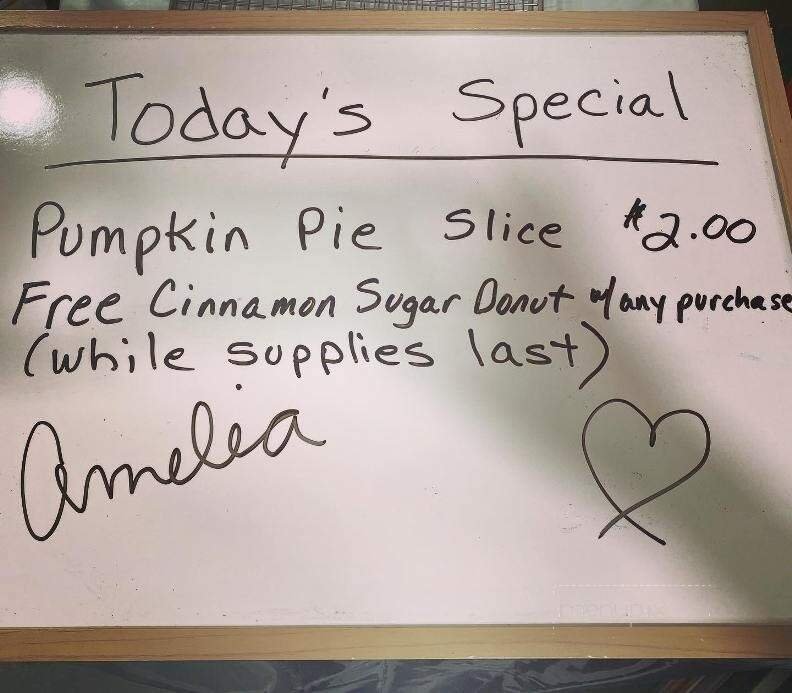 Today's Special
Pumpkin Pie Slice $2.00
Free Cinnamon Sugar Donut w/ any purchase
(while supplies last)
Amelia